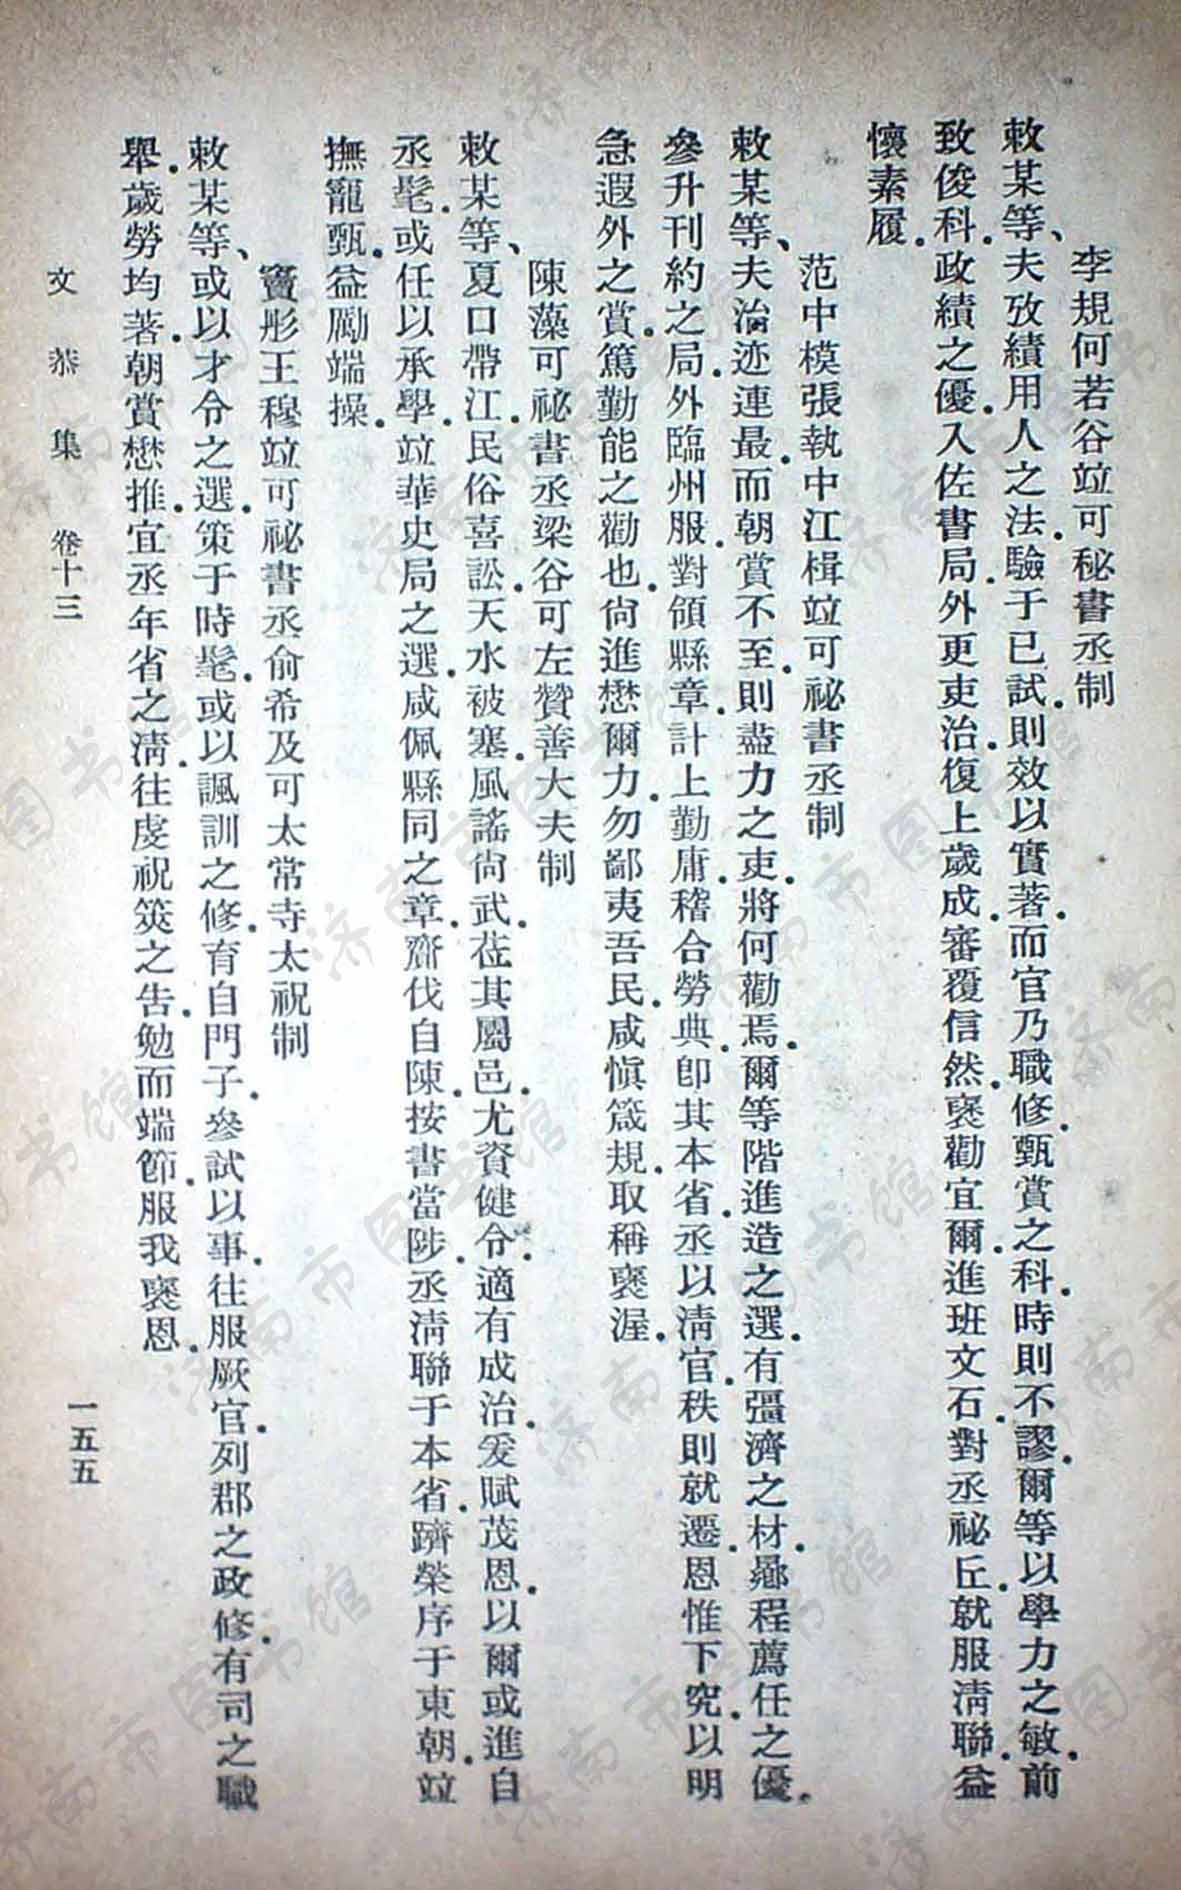 李規何若谷竝可秘書丞制
敕某等、夫攷績用人之法驗于已試.則效以實著.而官乃職修.甄賞之科.時則不謬.爾等以學力之敏.前
致俊科.政績之優.入佐書局.外更吏治.復上歲成.審覆信然.襃勸宜爾.進班文石.對丞祕丘.就服淸聯.益
懷素履.
范中模張執中江楫竝可祕書丞制
敕某等、夫治迹連最.而朝賞不至.則盡力之吏.將何勸焉.爾等階進造之選.有彊濟之材.程薦任之優.
參升刊約之局.外臨州服.對領縣章.計上勤庸.稽合勞典.卽其本省.丞以淸官.秩則就遷.恩惟下究.以明
急遐外之賞.篤勤能之勸也.尙進懋爾力.勿鄙夷吾民.咸愼箴規.取稱襃渥.
陳藻可祕書丞梁谷可左贊善大夫制
敕某等、夏口帶江.民俗喜訟.天水被塞.風謠尙武.莅其屬邑.尤資健令.適有成治.爰賦茂恩.以爾或進自
丞髦.或任以承學.竝華史局之選.咸佩縣同之章.齎伐自陳.按書當陟.丞淸聯于本省.躋榮序于東朝.竝
撫寵甄.益勵端操.
竇彤王穆竝可祕書丞俞希及可太常寺太祝制
敕某等、或以才令之選.策于時髦.或以諷訓之修.育自門子.參試以事.往服厥官.列郡之政修.有司之職
舉.歲勞均著.朝賞懋推.宜丞年省之淸.往虔祝筴之告.勉而端節.服我襃恩.
文恭集 卷十三
一五五
济南市图书馆